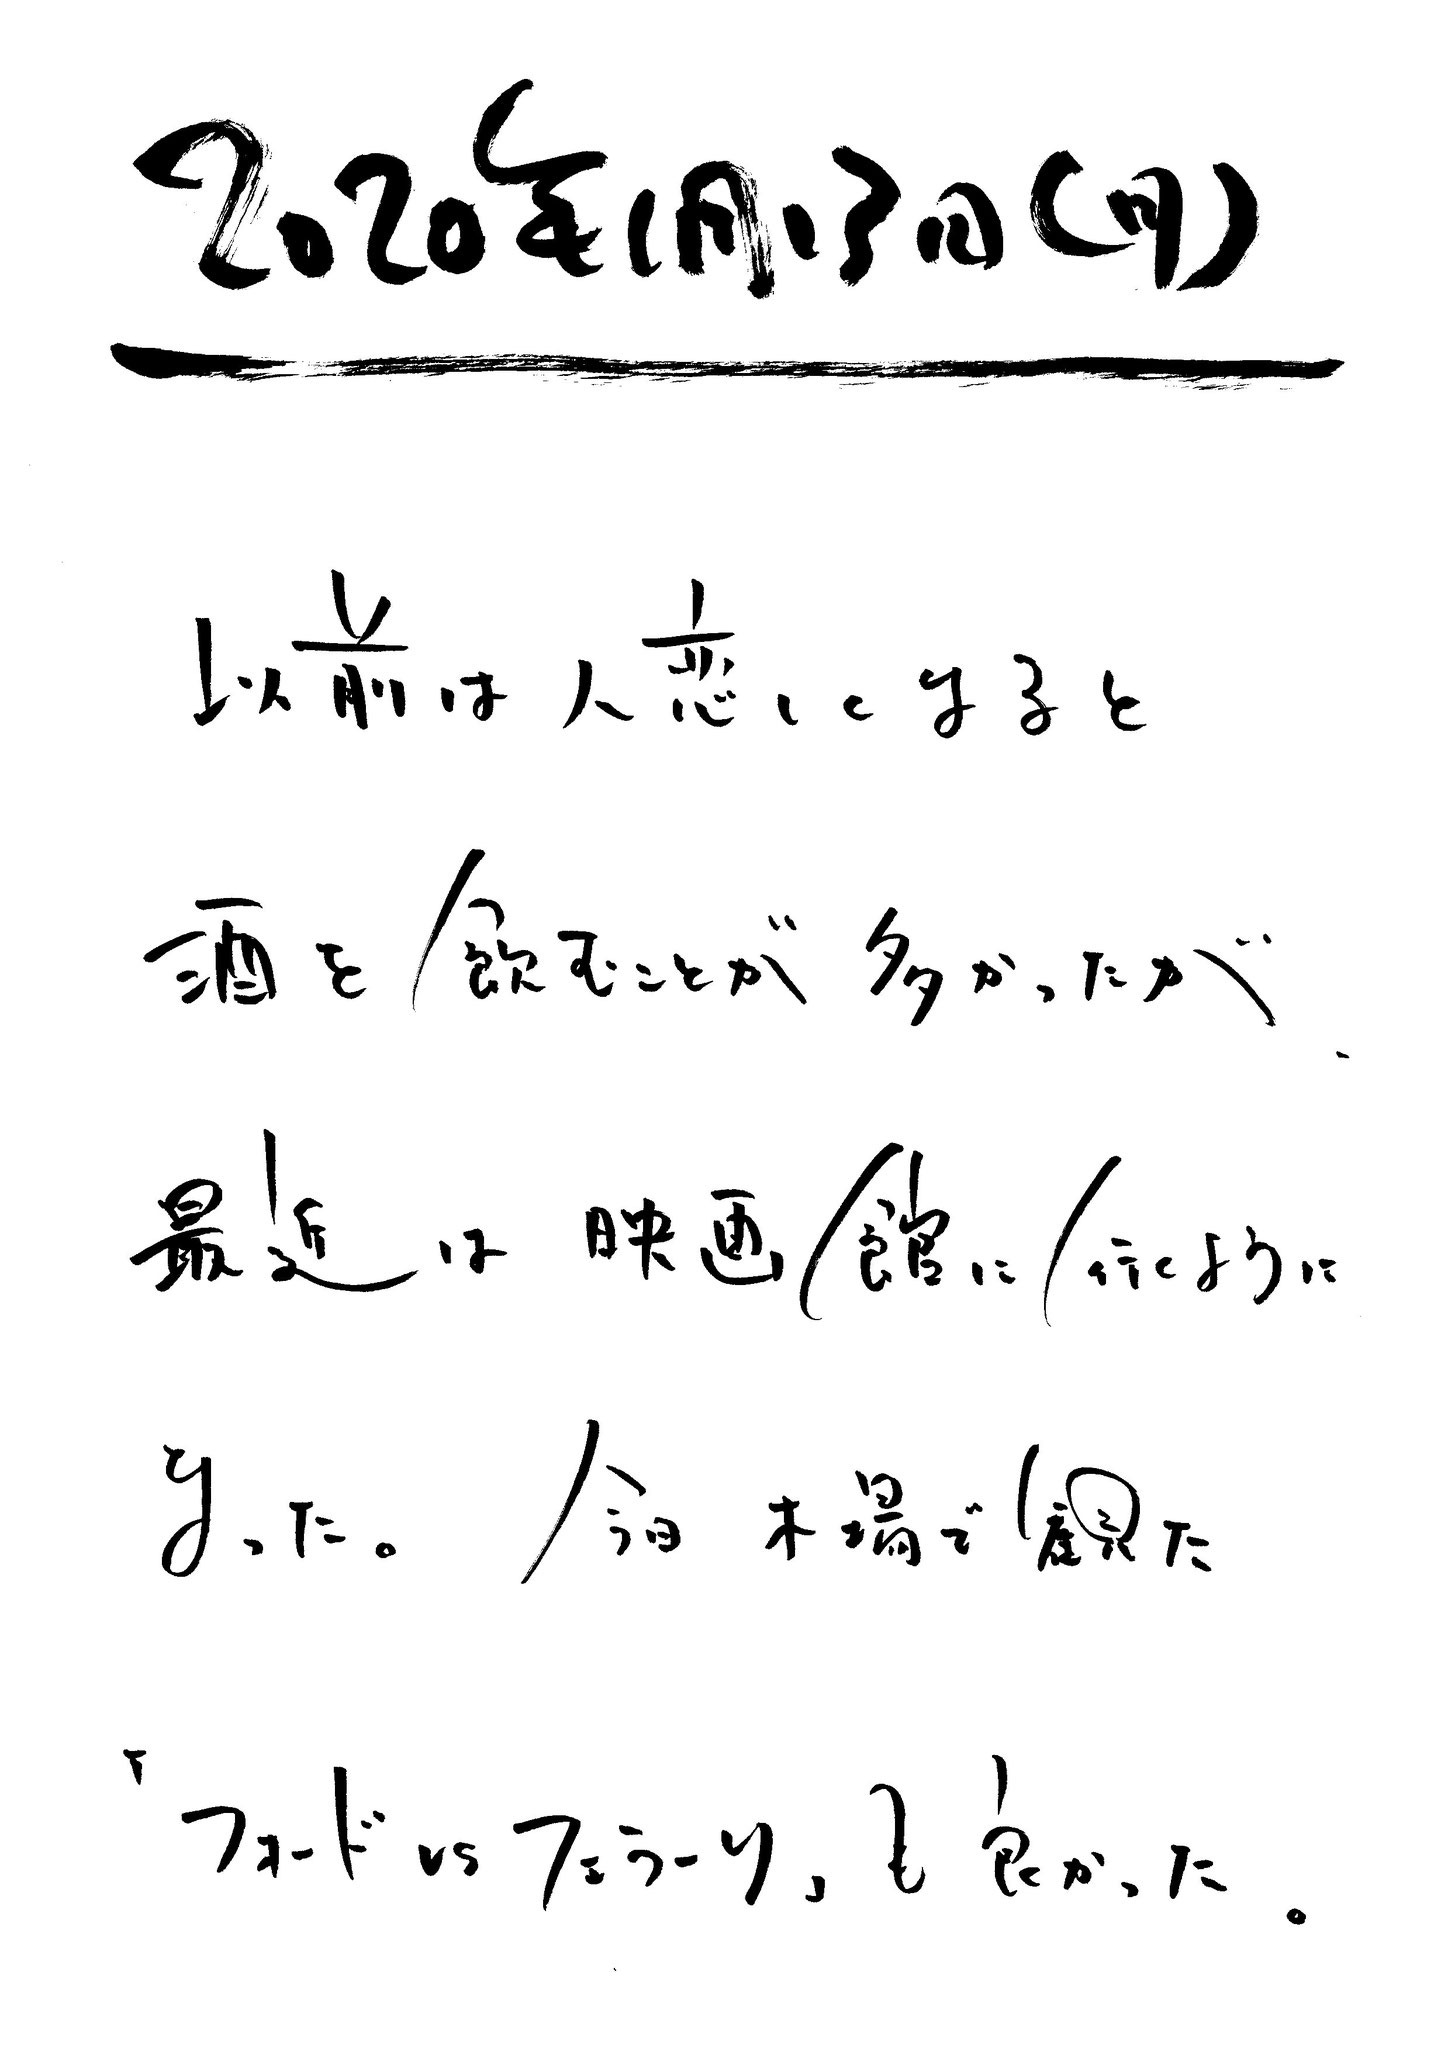 2020年1月13日(月)
以前は人恋しくなると
酒を飲むことが多かったが、
最近は映画館に行くように
なった。今日木場で観た
「フォードvsフェラーリ」も良かった。